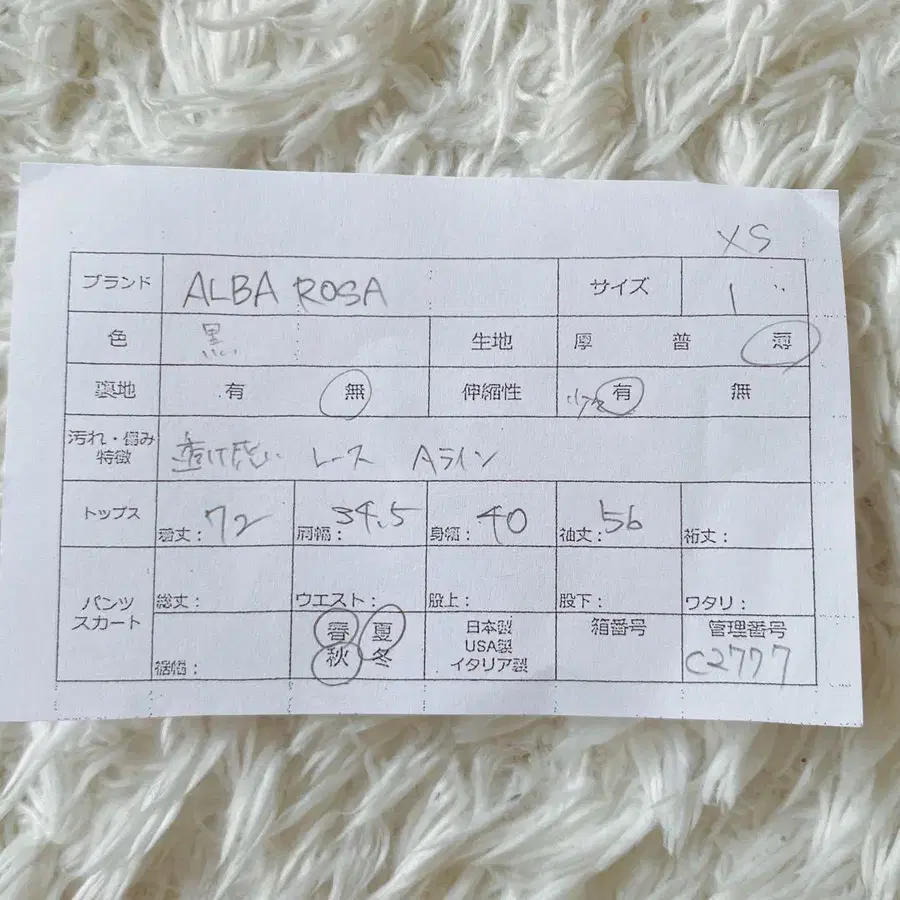 XS
ブランド ALBA ROSA サイズ 1
色 黒 生地 厚 普 薄
裏地 有 無 伸縮性 少々 有 無
汚れ・傷み
特徴 透け感 レース Aライン
トップス 着丈: 72 肩幅: 34.5 身幅: 40 袖丈: 56 裄丈:
パンツ
スカート 総丈: ウエスト: 股上: 股下: ワタリ:
裾幅: 春 夏 秋 冬 日本製 USA製 イタリア製 箱番号 管理番号
C2777